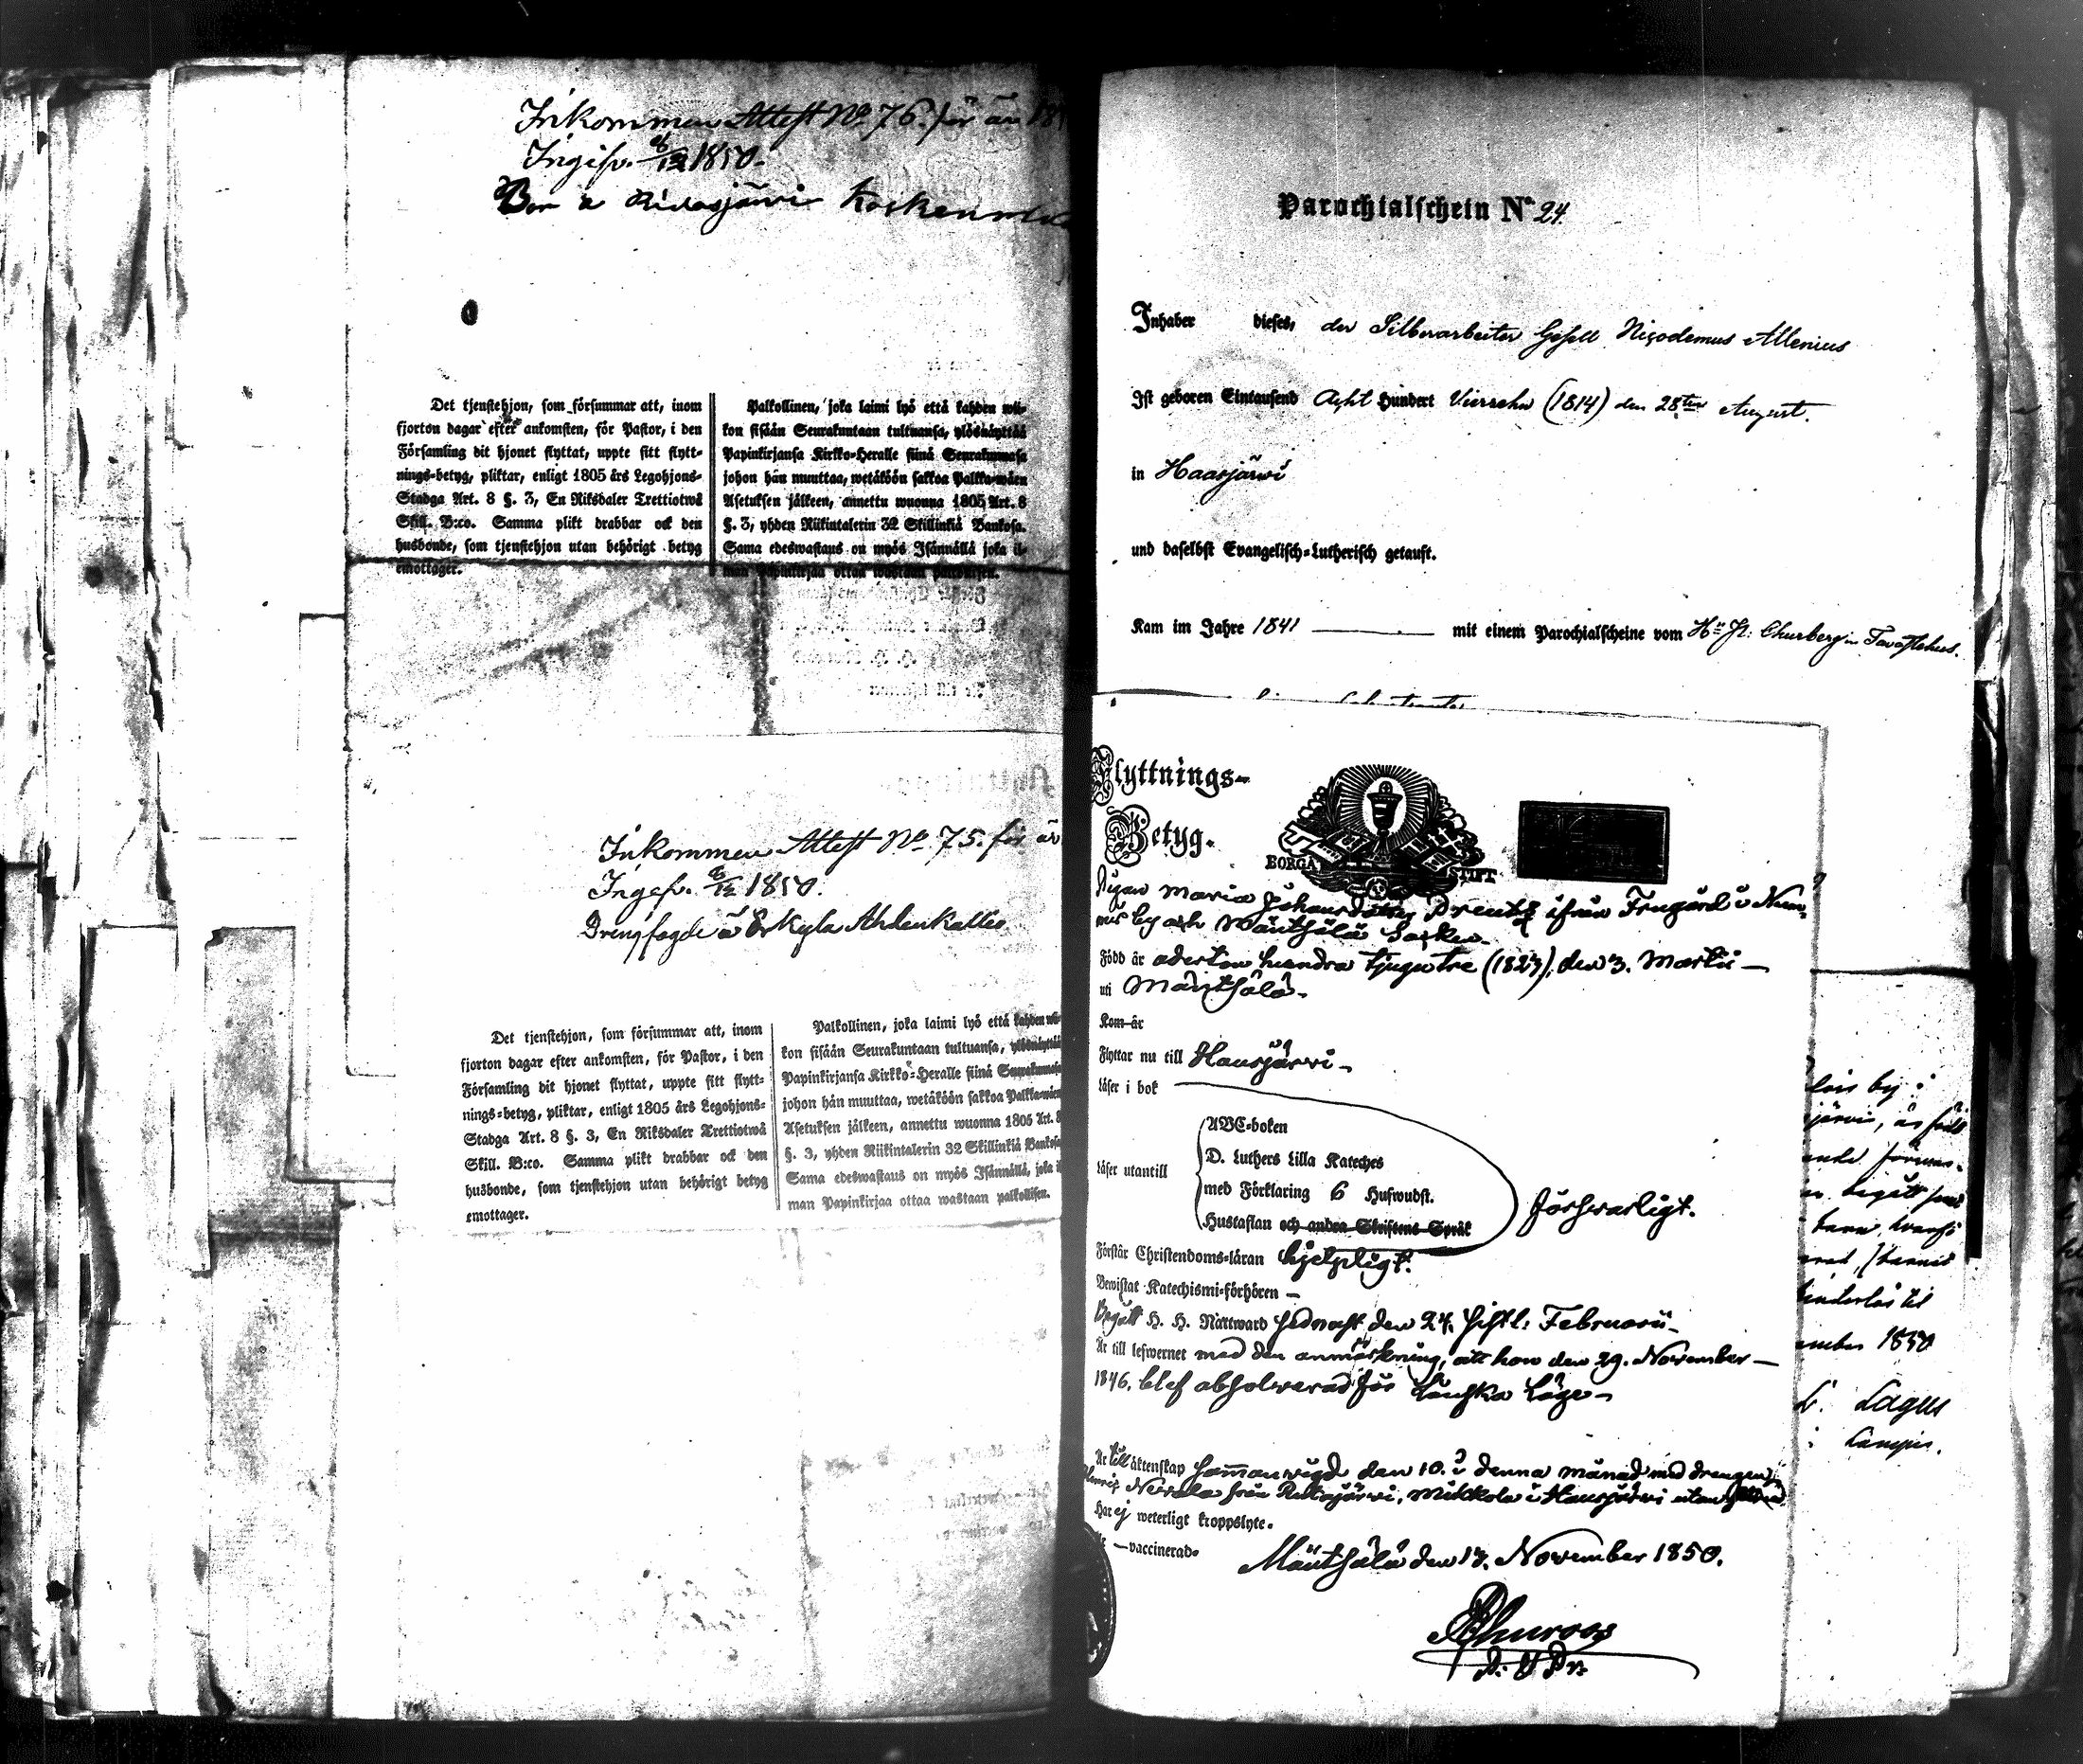 Inkommen Attest No 76. för år 18
Ingifv. 6/12 1850.
Bor å Ridasjärvi
Det tjenstehjon, som försummar att, inom
fjorton dagar efter ankomsten, för Pastor, i den
Församling dit hjonet flyttat, uppte sitt flytt-
nings-betyg, pliktar, enligt 1805 års Legohjons-
Stadga Art. 8 §. 3, En Riksdaler Trettiotwå
Skill. B:co. Samma plikt drabbar ock den
husbonde, som tjenstehjon utan behörigt betyg
emottager.
Palkollinen, joka laimi lyö että kahden wii-
kon sisään Seurakuntaan tultuansa, ylösnäyttää
Papinkirjansa Kirkko-Heralle siinä Seurakunnasa
johon hän muuttaa, wetäköön sakkoa Palkka-wäen
Asetuksen jälkeen, annettu wuonna 1805 Art. 8
§. 3, yhden Riikintalerin 32 Skillinkiä Bankosa.
Sama edeswastaus on myös Isännällä joka il-
man Papinkirjaa ottaa wastaan palkollisen.
Inkommen Attest No 75. för år
Ingifv. 6/12 1850.
Drengfogde å Erkylä Ahdenkallio
Det tjenstehjon, som försummar att, inom
fjorton dagar efter ankomsten, för Pastor, i den
Församling dit hjonet flyttat, uppte sitt flytt-
nings-betyg, pliktar, enligt 1805 års Legohjons-
Stadga Art. 8 §. 3, En Riksdaler Trettiotwå
Skill. B:co. Samma plikt drabbar ock den
husbonde, som tjenstehjon utan behörigt betyg
emottager.
Palkollinen, joka laimi lyö että kahden wii-
kon sisään Seurakuntaan tultuansa, ylösnäyttää
Papinkirjansa Kirkko-Heralle siinä Seurakunnasa
johon hän muuttaa, wetäköön sakkoa Palkka-wäen
Asetuksen jälkeen, annettu wuonna 1805 Art. 8
§. 3, yhden Riikintalerin 32 Skillinkiä Bankosa
Sama edeswastaus on myös Isännällä, joka il
man Papinkirjaa ottaa wastaan palkollisen.
Parochialschein No 24.
Inhaber dieses, der Silberarbeiter Gesell Nicodemus Allenius
Ist geboren Eintausend Acht Hundert Vierzehn (1814) den 28ten August.
in Haasjärwi
und daselbst Evangelisch-Lutherisch getauft.
Kam im Jahre 1841 mit einem Parochialscheine vom Hn P: Churberg in Tavastehus.
Flyttnings-
Betyg.
BORGÅ STIFT
Pigan Maria Johansdotter ifrån Frugård i Num-
mis by och Mäntsälä Socken
Född år aderton hundra tjugu tre (1823), den 3. Martii
uti Mäntsälä
Kom år
Flyttar nu till Hausjärwi
Läser i bok
ABC-boken
D. Luthers Lilla Kateches
Läser utantill
med Förklaring 6 Hufwudst.
Hustaflan och andra Skriftens Språk
förswarligt.
Förstår Christendoms-läran hjelpligt.
Bewistat Katechismi-förhören
Begått H. H. Nattward sednast den 24. sistl: Februarii
Är till lefwernet med den anmärkning, att hon den 29. November
1846. blef absolverad för Lönska Läge
Är till äktenskap sammanwigd den 10. i denna månad med drengen
Henric från Ridasjärwi, Mikkola i Hausjärwi utan
Har ej weterligt kroppslyte.
vaccinerad
Mäntsälä den 13. November 1850.
by i
järvis, är född
barn
ember 1850
Lagus